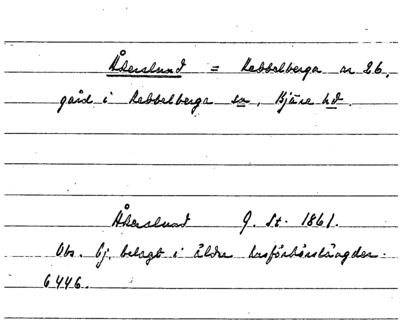 Åkerslund = Rebbelberga nr 26,
gård i Rebbelberga sn, Bjäre hd.
Åkerslund G. St. 1861.
Obs. Ej belagt i äldre husförhörslängder.
6446.